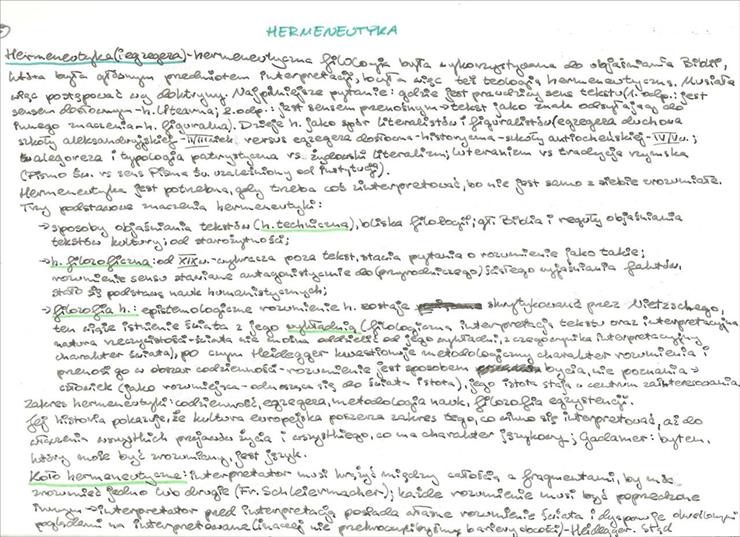 HERMENEUTYKA
Hermeneutyka (i egzegeza) - hermeneutyczna filologia była wykorzystywana do objaśniania Biblii,
która była głównym przedmiotem interpretacji, była więc też teologią hermeneutyczną. Musiała
więc postępować wg doktryny. Najpilniejsze pytanie: gdzie jest prawdziwy sens tekstu (1. odp.: jest
sensem dosłownym - h. literarna; 2. odp.: jest sensem przenośnym → tekst jako znak odsyłający do
innego znaczenia - h. figuralna). Dzieje h. jako spór literalistów i figuralistów (egzegeza duchowa
szkoły aleksandryjskiej - II/III wiek versus egzegeza dosłowna - historyczna - szkoły antiocheńskiej - IV/V w.;
alegoreza i typologia patrystyczna vs żydowski literalizm; luteranizm vs tradycja rzymska
(Pismo Św. vs sens Pisma Św. uzależniony od instytucji).
Hermeneutyka jest potrzebna, gdy trzeba coś zinterpretować, bo nie jest samo z siebie zrozumiałe.
Trzy podstawowe znaczenia hermeneutyki:
→ sposoby objaśniania tekstów (h. techniczna), bliska filologii; gł. Biblia i reguły objaśniania
tekstów kultury; od starożytności;
→ h. filozoficzna: od XIX w. - wykracza poza tekst, stawia pytania o rozumienie jako takie;
rozumienie sensu stawiane antagonistycznie do (przyrodniczego) ścisłego wyjaśniania faktów,
stało się podstawą nauk humanistycznych;
→ filozofia h.: epistemologiczne rozumienie h. zostaje skrytykowane przez Nietzschego,
ten wiąże istnienie świata z jego wykładnią (filologiczna interpretacja tekstu oraz interpretacyjna
natura rzeczywistości - świata nie można oddzielić od jego wykładni, z czego wynika interpretacyjny
charakter świata), po czym Heidegger kwestionuje metodologiczny charakter rozumienia i
przenosi go w obszar codzienności - rozumienie jest sposobem bycia, nie poznania →
człowiek (jako rozumiejąca - odnosząca się do świata istota), jego istota staje w centrum zainteresowania
Zakres hermeneutyki: codzienność, egzegeza, metodologia nauk, filozofia egzystencji.
Jej historia pokazuje, że kultura europejska poszerza zakres tego, co winno się interpretować, aż do
włączenia wszystkich przejawów życia i wszystkiego, co ma charakter językowy; Gadamer: bytem,
który może być zrozumiany, jest język.
Koło hermeneutyczne: interpretator musi krążyć między całością a fragmentami, by móc
zrozumieć jedno lub drugie (Fr. Schleiermacher); każde rozumienie musi być poprzedzone
innym → interpretator przed interpretacją posiada własne rozumienie świata i dysponuje określonymi
poglądami na interpretowane (inaczej nie przekroczylibyśmy bariery obcości) - Heidegger. Stąd